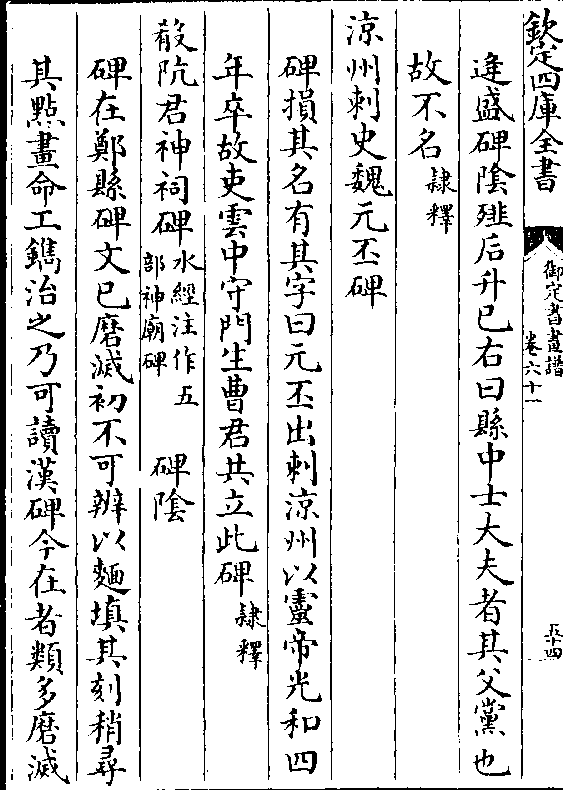 欽定四庫全書
御定書畫譜
卷六十一
五十四
逄盛碑陰琟后升已右曰縣中士大夫者其父黨也
故不名隸釋
涼州刺史魏元丕碑
碑損其名有其字曰元丕出刺涼州以靈帝光和四
年卒故吏雲中守門生曹君共立此碑隸釋
殽阬君神祠碑水經注作五部神廟碑 碑陰
碑在鄭縣碑文已磨滅初不可辨以麵填其刻稍尋
其點畫命工鐫治之乃可讀漢碑今在者類多磨滅